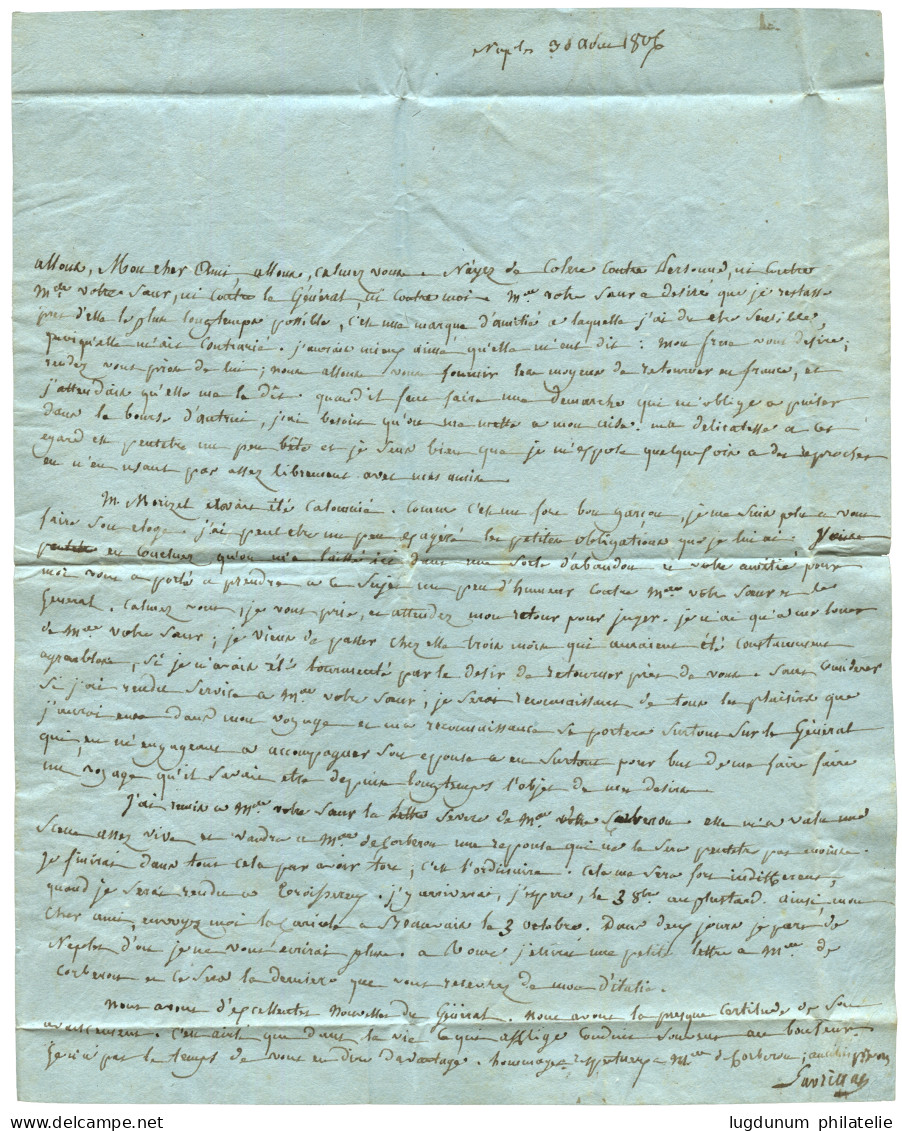 Naples 30 Aout 1806
allons, Mon cher Ami allons, calmez vous. N'ayez de colere contre Personne, ni contre
Mde votre Sœur, ni contre le Général, ni contre moi. Mme votre Sœur a desiré que je restasse
près d'elle le plus longtemps possible, c'est une marque d'amitié a laquelle j'ai du etre Sensible,
puisqu'elle m'ait contrarié. j'aurais mieux aimé qu'elle m'eut dit : mon frere vous desire;
rendez vous près de lui; nous allons vous fournir les moyens de retourner en france, et
j'attendais qu'elle me le dît. quand il faut faire une demarche qui m'oblige a puiser
dans la bourse d'autrui, j'ai besoin qu'on me mette a mon aise. ma delicatesse a cet
egard est peutetre un peu bête et je Sens bien que je m'expose quelquefois a des reproches
en n'en usant pas assez librement avec mes amis.
M. Morizel avait été calomnié. comme c'est un fort bon garcon, je me suis plu a vous
faire Son eloge. j'ai peut etre un peu exagéré les petites obligations que je lui ai.
en conclure qu'on m'a laissé ici dans une Sorte d'abandon et votre amitié pour
moi vous a porté a prendre a ce Sujet un peu d'humeur contre Mme votre Sœur et le
General. calmez vous, je vous prie, et attendez mon retour pour juger. je n'ai qu'a me louer
de Mme votre Sœur; je viens de passer chez elle trois mois qui auraient été constamment
agreables, Si je n'avais été tourmenté par le desir de retourner près de vous. Sans
Si j'ai rendu Service a Mme votre Sœur, je Serai reconnaissant de tous les plaisirs que
j'aurai eus dans mon voyage et ma reconnaissance Se portera Surtout Sur le Général
qui, en m'engageant a accompagner Son epouse a eu Surtout pour but de me faire faire
un voyage qu'il Savait etre depuis longtemps l'objet de mes desirs.
J'ai remis a Mme votre Sœur la lettre Severe de Mme elle m'a valu une
Scene assez vive et vaudra a Mme de Corberon une reponse qui ne le Sera peutetre pas moins.
Je finirai dans tout cela par avoir tort; c'est l'ordinaire. cela me Sera fort indifferent,
quand je Serai rendu a Troissereux. j'y arriverai, j'espere, le 3 8bre au plustard. ainsi, mon
cher ami, envoyez moi la cariole a Beauvais le 3 octobre. Dans deux jours je pars de
Naples d'où je ne vous ecrirai plus. a Rome j'ecrirai une petite lettre a Mme de
Corberon et ce Sera la derniere que vous recevrez de moi d'italie.
Nous avons d'excellentes nouvelles du Général. nous avons la presque certitude de Son
avancement. c'est ainsi que dans la vie ce qui afflige conduit Souvent au bonheur.
Je n'ai pas le temps de vous en dire davantage. hommage respectueux a Mme de Corberon;
lugdunum philatelie